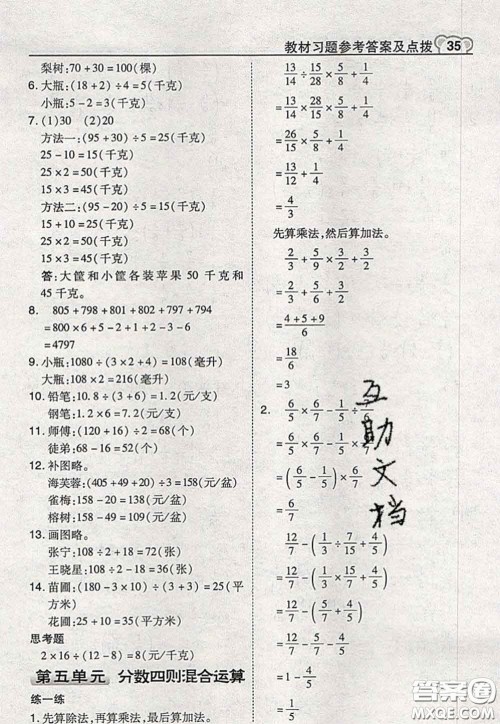 教材习题参考答案及点拨 35
梨树:70+30=100(棵)
6. 大瓶:(18+2)÷4=5(千克)
小瓶:5-2=3(千克)
7. (1)30 (2)20
方法一:(95+30)÷5=25(千克)
25-10=15(千克)
25×2=50(千克)
15×3=45(千克)
方法二:(95-20)÷5=15(千克)
15+10=25(千克)
25×2=50(千克)
15×3=45(千克)
答:大筐和小筐各装苹果 50 千克和
45 千克。
8. 805+798+801+800+794+799
=800×6+5-2+1-6-1
=4797
9. 小瓶:1080÷(3×2+4)=108(毫升)
大瓶:108×2=216(毫升)
10. 铅笔:6÷(3+2)=1.2(元/支)
钢笔:1.2×6=7.2(元/支)
11. 师傅:(120-4)÷2=58(个)
徒弟:58+4=62(个)
12. 补图略。
海芙蓉:(405+49+20)÷3=158(元/盆)
雀梅:158-20=138(元/盆)
榕树:158-49=109(元/盆)
13. 画图略。
张宁:108÷2+18=72(张)
王晓星:108÷2-18=36(张)
14. 苗圃:(180-3×10)÷(3+3)=25(平
方米)
花圃:25+10=35(平方米)
思考题
2×16÷(12-8)=8(只)
第五单元 分数四则混合运算
练一练
1. 先算除法,再算乘法,最后算加法。
13/14÷15/28×5/3+1/4
=13/14×28/15×5/3+1/4
=26/15×5/8+1/4
=13/12+1/4
=4/3
先算乘法,然后算加法。
2/3+5/9+3/2×2/3
=2/3+5/6+3/2
=(4+5+9)/6
=18/6
=3
2. 5/6×6/7-1/6÷7/6
=5/6×6/7-1/6×6/7
=(5/6-1/6)×6/7
=6/7
12/7-(1/3÷7/15+4/5)
=12/7-(1/3×15/7+4/5)
=12/7-(5/7+4/5)
=12/7-5/7-4/5
=1-4/5
互
助
文
档
答案圈
MXQE.COM